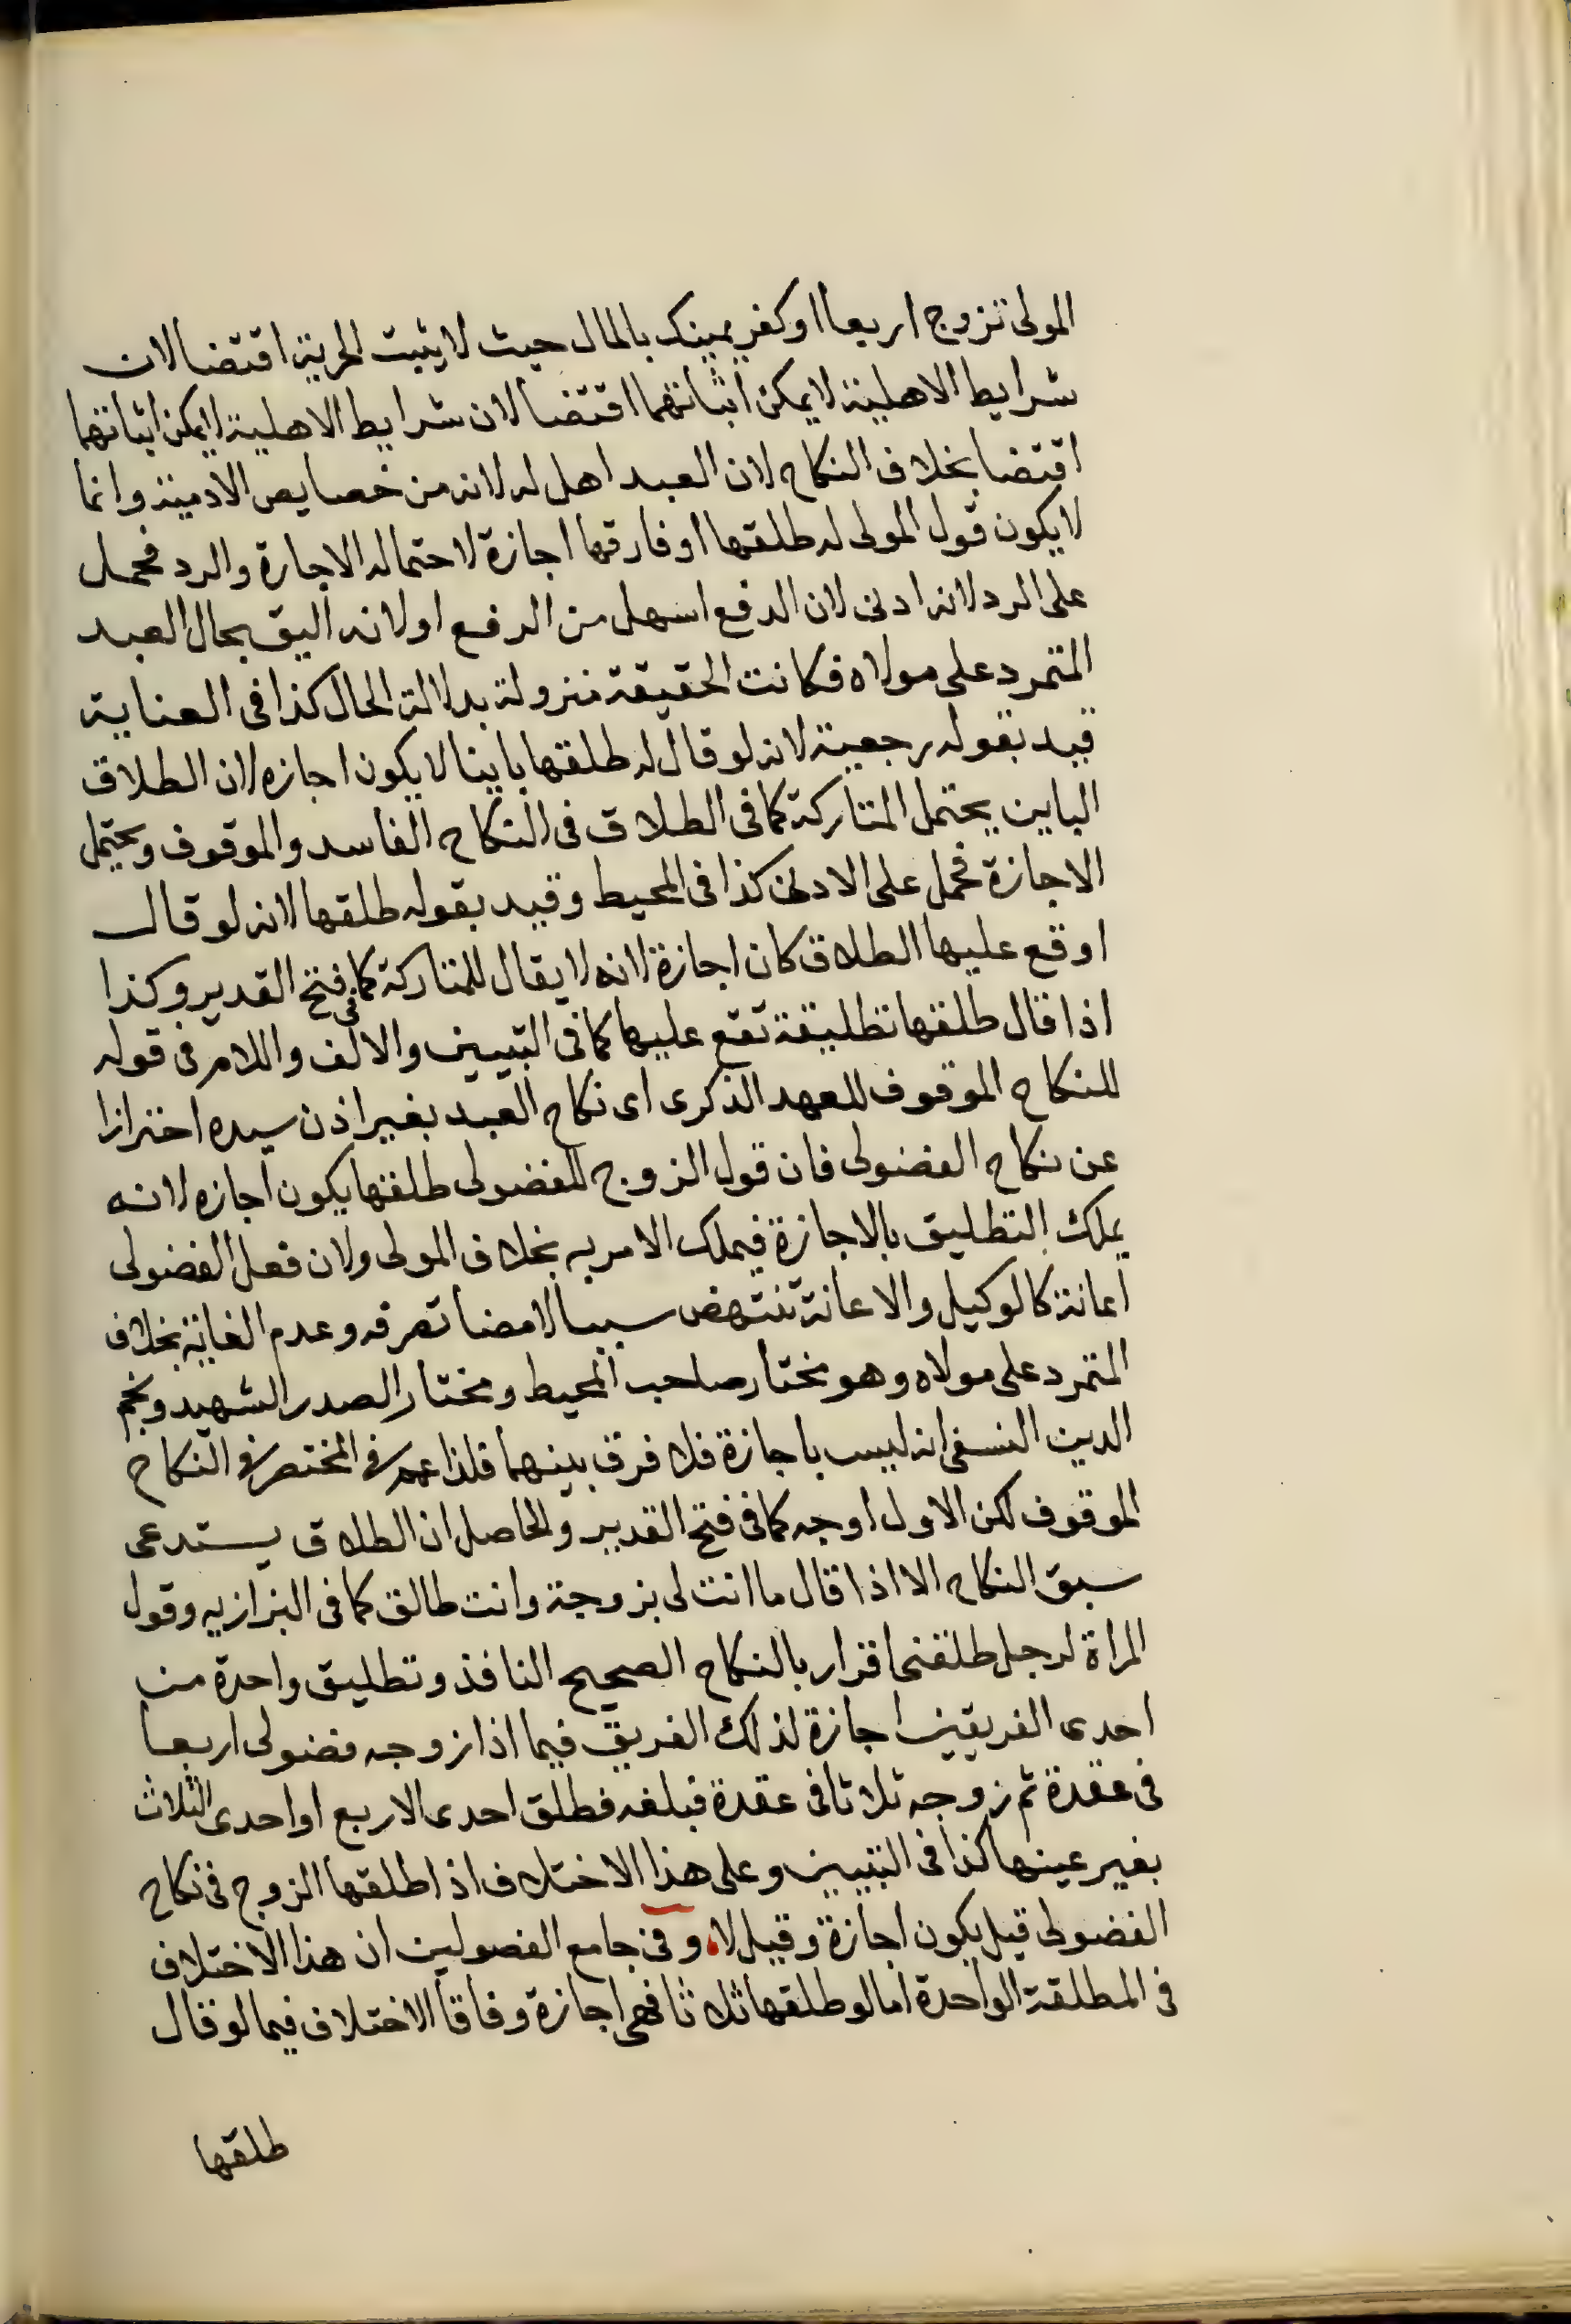 المولى تزوج اربعا او كفر يمينك بالمال حيث لا يثبت الحرية اقتضا لان
شرايط الاهلية لا يمكن اثباتهما اقتضا لان شرايط الاهلية لا يمكن اثباتهما
اقتضا بخلاف النكاح لان العبد اهل له لانه من خصايص الادمية وانما
لا يكون قول المولى له طلقها او فارقها اجازة لاحتماله الاجازة والرد فحمل
على الرد لانه ادنى لان الدفع اسهل من الرفع او لانه اليق بحال العبد
المتمرد على مولاه فكانت الحقيقة متروكة بدلالة الحال كذا في العناية
قيد بقوله رجعية لانه لو قال له طلقها باينا لا يكون اجازه لان الطلاق
الباين يحتمل المتاركة كما في الطلاق في النكاح الفاسد والموقوف ويحتمل
الاجازة فحمل على الادنى كذا في المحيط وقيد بقوله طلقها لانه لو قال
اوقع عليها الطلاق كان اجازة لانه لا يقال للمتاركة كما في فتح القدير وكذا
اذا قال طلقها تطليقة تقع عليها كما في التبيين والالف واللام في قوله
للنكاح الموقوف للعهد الذكرى اى نكاح العبد بغير اذن سيده احترازا
عن نكاح الفضولى فان قول الزوج للفضولى طلقها يكون اجازه لانه
يملك التطليق بالاجازة فيملك الامر به بخلاف المولى ولان فعل الفضولى
اعانة كالوكيل والاعانة تنتهض سببا لامضا تصرفه وعدم الغاية بخلاف
المتمرد على مولاه وهو مختار صاحب المحيط ومختار الصدر الشهيد ونجم
الدين النسفى انه ليس باجازة فلا فرق بينهما فلذا عمم في المختصر في النكاح
الموقوف لكن الاول اوجه كما في فتح القدير والحاصل ان الطلاق يستدعى
سبق النكاح الا اذا قال ما انت لى بزوجة وانت طالق كما في البزازيه وقول
المراة لرجل طلقنى اقرار بالنكاح الصحيح النافذ وتطليق واحدة من
احدى الفريقين اجازة لذلك الفريق فيما اذا زوجه فضولى اربعا
في عقدة ثم زوجه ثلاثا في عقدة فبلغه فطلق احدى الاربع او احدى الثلاث
بغير عينها كذا في التبيين وعلى هذا الاختلاف اذا طلقها الزوج في نكاح
الفضولى قيل يكون اجازة وقيل لا وفى جامع الفصولين ان هذا الاختلاف
في المطلقة الواحدة اما لو طلقها ثلاثا فهى اجازة وفاقا الاختلاف فيما لو قال
طلقها